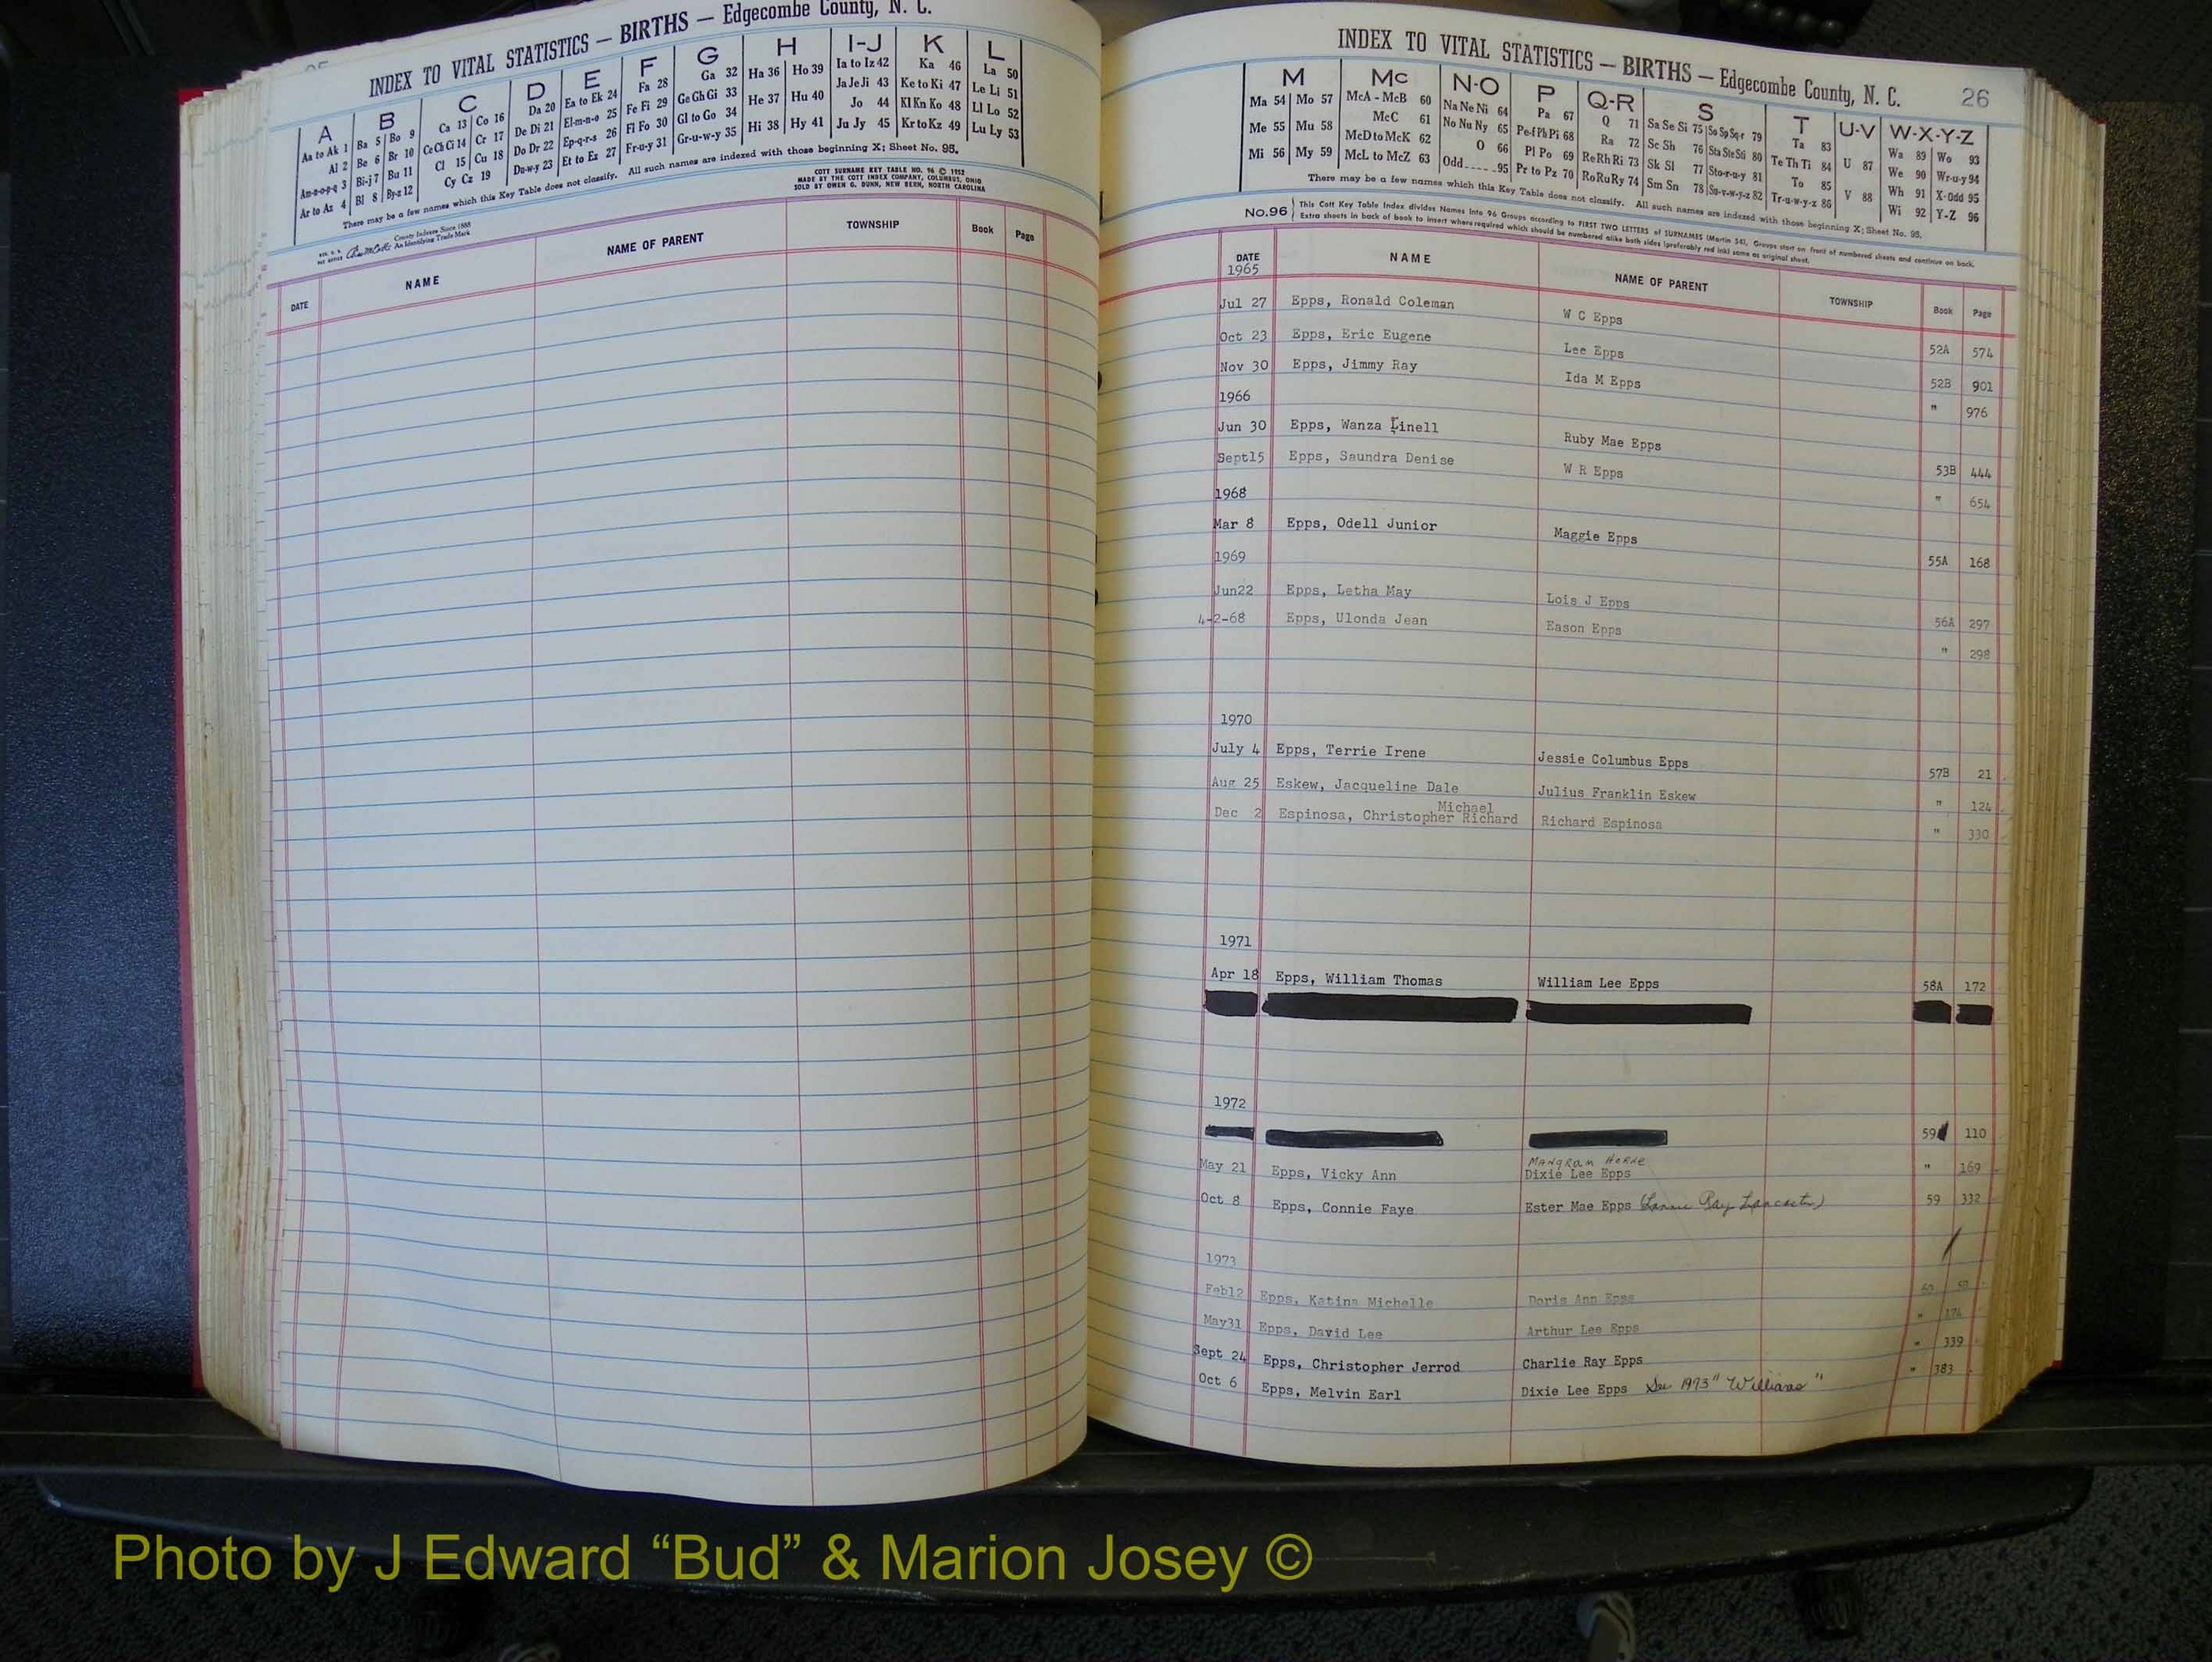 INDEX TO VITAL STATISTICS — BIRTHS — Edgecombe County, N. C.
A B C D E F G H I-J K L
Aa to Ak 1 Ba 5 Bo 9 Ca 13 Co 16 Da 20 Ea to Ek 24 Fa 28 Ga 32 Ha 36 Ho 39 Ia to Iz 42 Ka 46 La 50
Al 2 Be 6 Br 10 Ce Ch Ci 14 Cr 17 De Di 21 El-m-n-o 25 Fe Fi 29 Ge Gh Gi 33 He 37 Hu 40 Ja Je Ji 43 Ke to Ki 47 Le Li 51
Am-n-o-p-q 3 Bi-j 7 Bu 11 Cl 15 Cu 18 Do Dr 22 Ep-q-r-s 26 Fl Fo 30 Gl to Go 34 Hi 38 Hy 41 Jo 44 Kl Kn Ko 48 Ll Lo 52
Ar to Az 4 Bl 8 By-z 12 Cy Cz 19 Du-w-y 23 Et to Ez 27 Fr-u-y 31 Gr-u-w-y 35 Ju Jy 45 Kr to Kz 49 Lu Ly 53
There may be a few names which this Key Table does not classify. All such names are indexed with those beginning X; Sheet No. 95.
COTT SURNAME KEY TABLE NO. 96 © 1952
MADE BY THE COTT INDEX COMPANY, COLUMBUS, OHIO
SOLD BY OWEN G. DUNN, NEW BERN, NORTH CAROLINA
County Indexes Since 1888
An Identifying Trade Mark
DATE NAME NAME OF PARENT TOWNSHIP Book Page
INDEX TO VITAL STATISTICS — BIRTHS — Edgecombe County, N. C. 26
M Mc N-O P Q-R S T U-V W-X-Y-Z
Ma 54 Mo 57 McA - McB 60 Na Ne Ni 64 Pa 67 Q 71 Sa Se Si 75 So Sp Sq-r 79 Ta 83 U 87 Wa 89 Wo 93
Me 55 Mu 58 McC 61 No Nu Ny 65 Pe-f Ph Pi 68 Ra 72 Sc Sh 76 Sta Ste Sti 80 Te Th Ti 84 V 88 We 90 Wr-u-y 94
Mi 56 My 59 McD to McK 62 O 66 Pl Po 69 Re Rh Ri 73 Sk Sl 77 Sto-r-u-y 81 To 85 Wh 91 X-Odd 95
McL to McZ 63 Odd 95 Pr to Pz 70 Ro Ru Ry 74 Sm Sn 78 Su-v-w-y-z 82 Tr-u-w-y-z 86 Wi 92 Y-Z 96
There may be a few names which this Key Table does not classify. All such names are indexed with those beginning X; Sheet No. 95.
No.96 This Cott Key Table Index divides Names into 96 Groups according to FIRST TWO LETTERS of SURNAMES (Martin 54). Groups start on front of numbered sheets and continue on back.
Extra sheets in back of book to insert where required which should be numbered alike both sides (preferably red ink) same as original sheet.
DATE NAME NAME OF PARENT TOWNSHIP Book Page
1965
Jul 27 Epps, Ronald Coleman W C Epps 52A 574
Oct 23 Epps, Eric Eugene Lee Epps 52B 901
Nov 30 Epps, Jimmy Ray Ida M Epps " 976
1966
Jun 30 Epps, Wanza Linell Ruby Mae Epps 53B 444
Sept15 Epps, Saundra Denise W R Epps " 654
1968
Mar 8 Epps, Odell Junior Maggie Epps 55A 168
1969
Jun22 Epps, Letha May Lois J Epps 56A 297
4-2-68 Epps, Ulonda Jean Eason Epps " 298
1970
July 4 Epps, Terrie Irene Jessie Columbus Epps 57B 21
Aug 25 Eskew, Jacqueline Dale Julius Franklin Eskew " 124
Michael
Dec 2 Espinosa, Christopher Richard Richard Espinosa " 330
1971
Apr 18 Epps, William Thomas William Lee Epps 58A 172
1972
59 110
Mangram Horne
May 21 Epps, Vicky Ann Dixie Lee Epps " 169
Oct 8 Epps, Connie Faye Ester Mae Epps (Lonnie Ray Lancaster) 59 332
1973
Feb12 Epps, Katina Michelle Doris Ann Epps
May31 Epps, David Lee Arthur Lee Epps " 174
Sept 24 Epps, Christopher Jerrod Charlie Ray Epps " 339
Oct 6 Epps, Melvin Earl Dixie Lee Epps See 1973 "Williams" " 383
Photo by J Edward “Bud” & Marion Josey ©